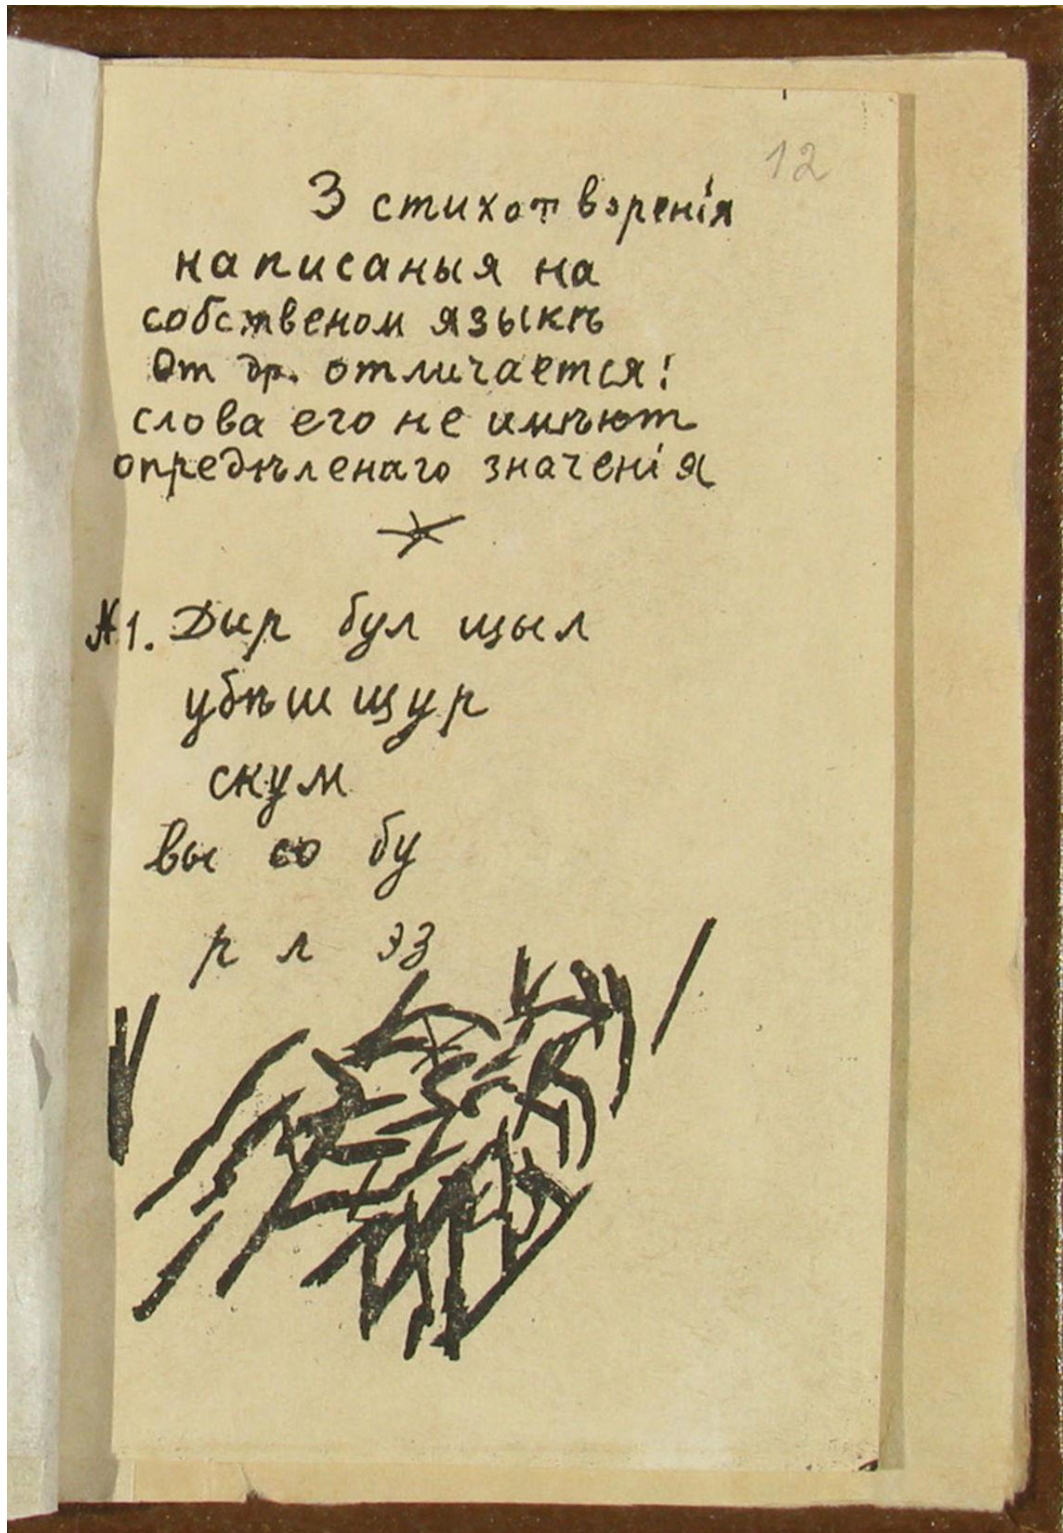 12
3 стихотворенія
написаныя на
собственом языкѣ
От др. отличается:
слова его не имѣют
опредѣленаго значенія
№1. Дыр бул щыл
убѣш щур
скум
вы со бу
р л эз